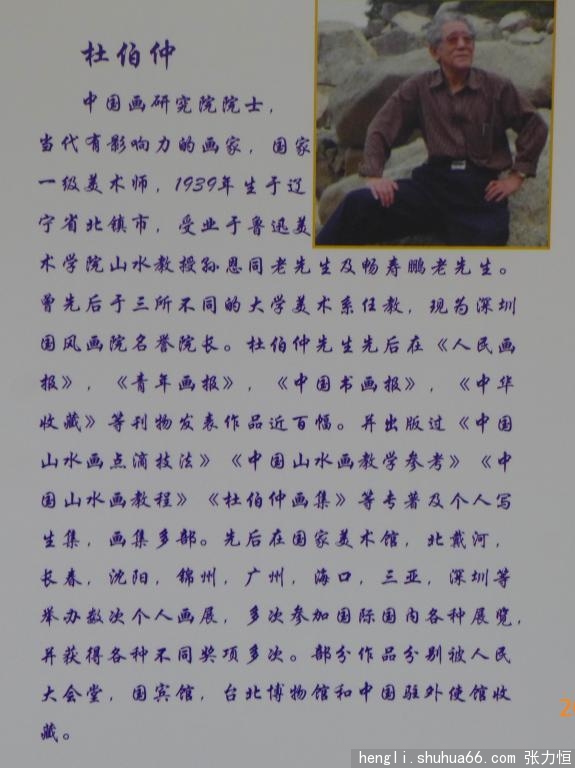 杜伯仲
中国画研究院院士，
当代有影响力的画家，国家
一级美术师，1939年生于辽
宁省北镇市，受业于鲁迅美
术学院山水教授孙恩同老先生及畅寿鹏老先生。
曾先后于三所不同的大学美术系任教，现为深圳
国风画院名誉院长。杜伯仲先生先后在《人民画
报》，《青年画报》，《中国书画报》，《中华
收藏》等刊物发表作品近百幅。并出版过《中国
山水画点滴技法》《中国山水画教学参考》《中
国山水画教程》《杜伯仲画集》等专著及个人写
生集，画集多部。先后在国家美术馆，北戴河，
长春，沈阳，锦州，广州，海口，三亚，深圳等
举办数次个人画展，多次参加国际国内各种展览，
并获得各种不同奖项多次。部分作品分别被人民
大会堂，国宾馆，台北博物馆和中国驻外使馆收
藏。
hengli.shuhua66.com 张力恒